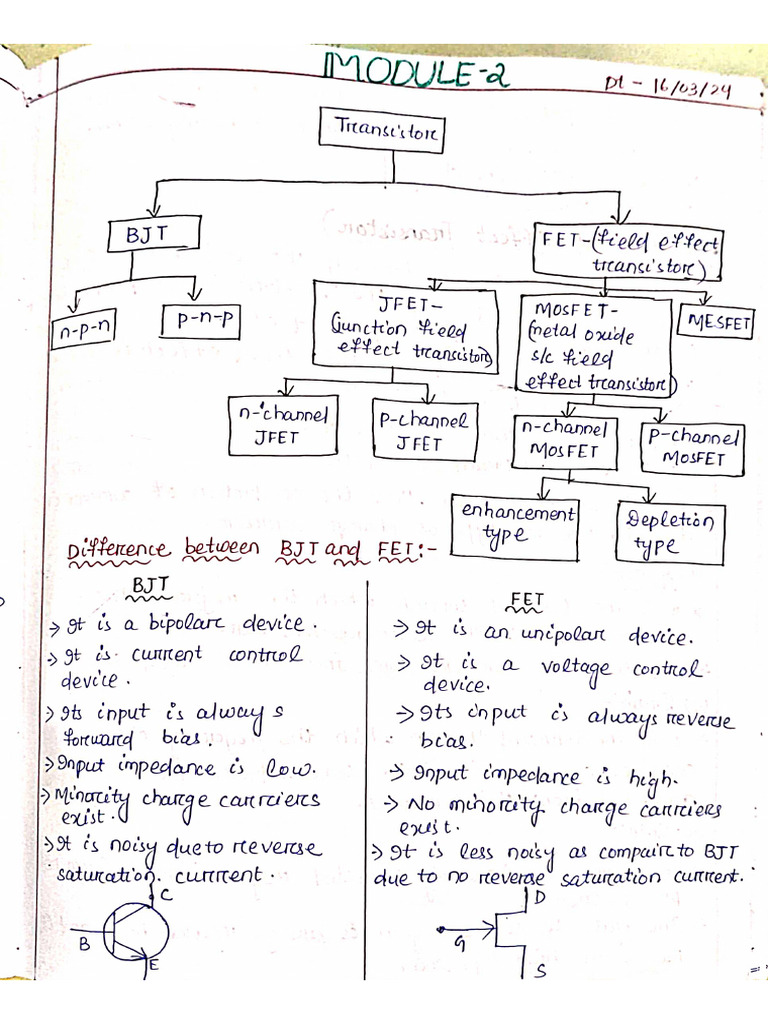 MODULE-2
Dt - 16/03/24
Transistore
BJT
FET-(field effect
transistore)
n-p-n
p-n-p
JFET-
(junction field
effect transistore)
MOSFET-
(metal oxide
s/c field
effect transistore)
MESFET
n-channel
JFET
p-channel
JFET
n-channel
MOSFET
p-channel
MOSFET
enhancement
type
Depletion
type
Difference between BJT and FET:-
BJT
→ It is a bipolar device.
→ It is current control
device.
→ Its input is always
forward bias.
→ Input impedance is low.
→ Minority charge carriers
exist.
→ It is noisy due to reverse
saturation. current.
C
B
E
FET
→ It is an unipolar device.
→ It is a voltage control
device.
→ Its input is always reverse
bias.
→ Input impedance is high.
→ No minority charge carriers
exist.
→ It is less noisy as compaire to BJT
due to no reverse saturation current.
D
G
S